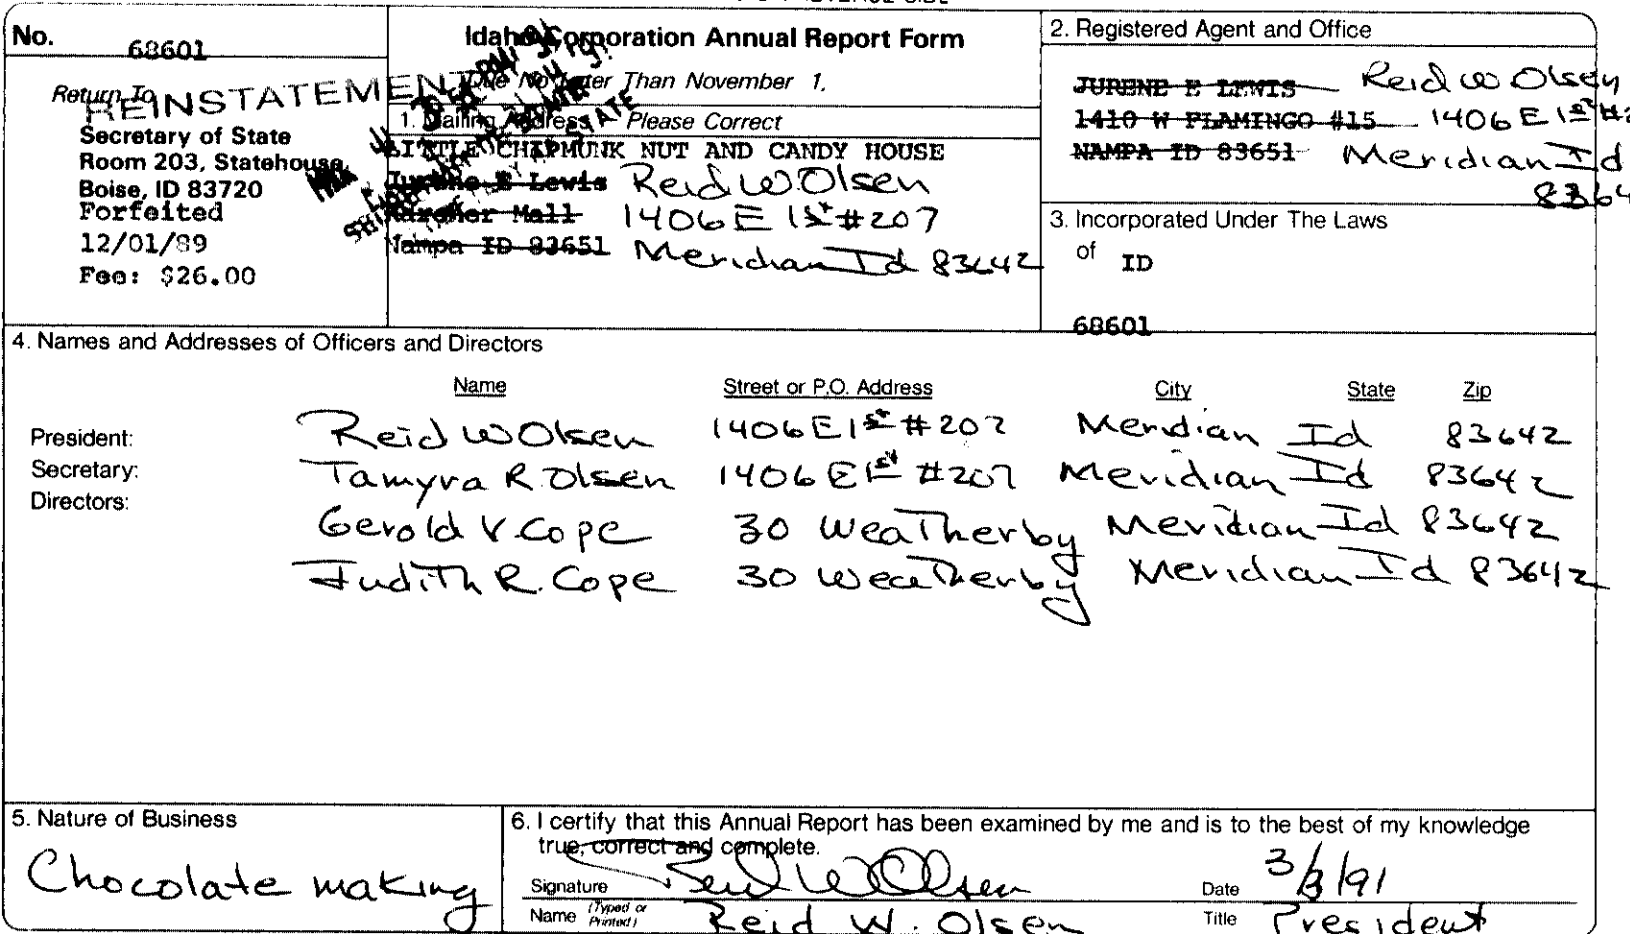 No. 68601
Idaho Corporation Annual Report Form
Due No Later Than November 1.
Return To
REINSTATEMENT
Secretary of State
Room 203, Statehouse
Boise, ID 83720
Forfeited
12/01/89
Fee: $26.00
1. Mailing Address Please Correct
LITTLE CHIPMUNK NUT AND CANDY HOUSE
Jurene E Lewis Reid W Olsen
Karcher Mall 1406 E 1st #207
Nampa ID 83651 Meridian Id 83642
2. Registered Agent and Office
JURENE E LEWIS Reid W Olsen
1410 W FLAMINGO #15 1406 E 1st
NAMPA ID 83651 Meridian Id
8364
3. Incorporated Under The Laws
of ID
68601
4. Names and Addresses of Officers and Directors
Name Street or P.O. Address City State Zip
President: Reid W Olsen 1406 E 1st #207 Meridian Id 83642
Secretary: Tamyra R. Olsen 1406 E 1st #207 Meridian Id 83642
Directors:
Gerold V. Cope 30 Weatherby Meridian Id 83642
Judith R. Cope 30 Weatherby Meridian Id 83642
5. Nature of Business
Chocolate making
6. I certify that this Annual Report has been examined by me and is to the best of my knowledge
true, correct and complete.
Signature Reid W Olsen Date 3/8/91
Name (Typed or Printed) Reid W. Olsen Title President